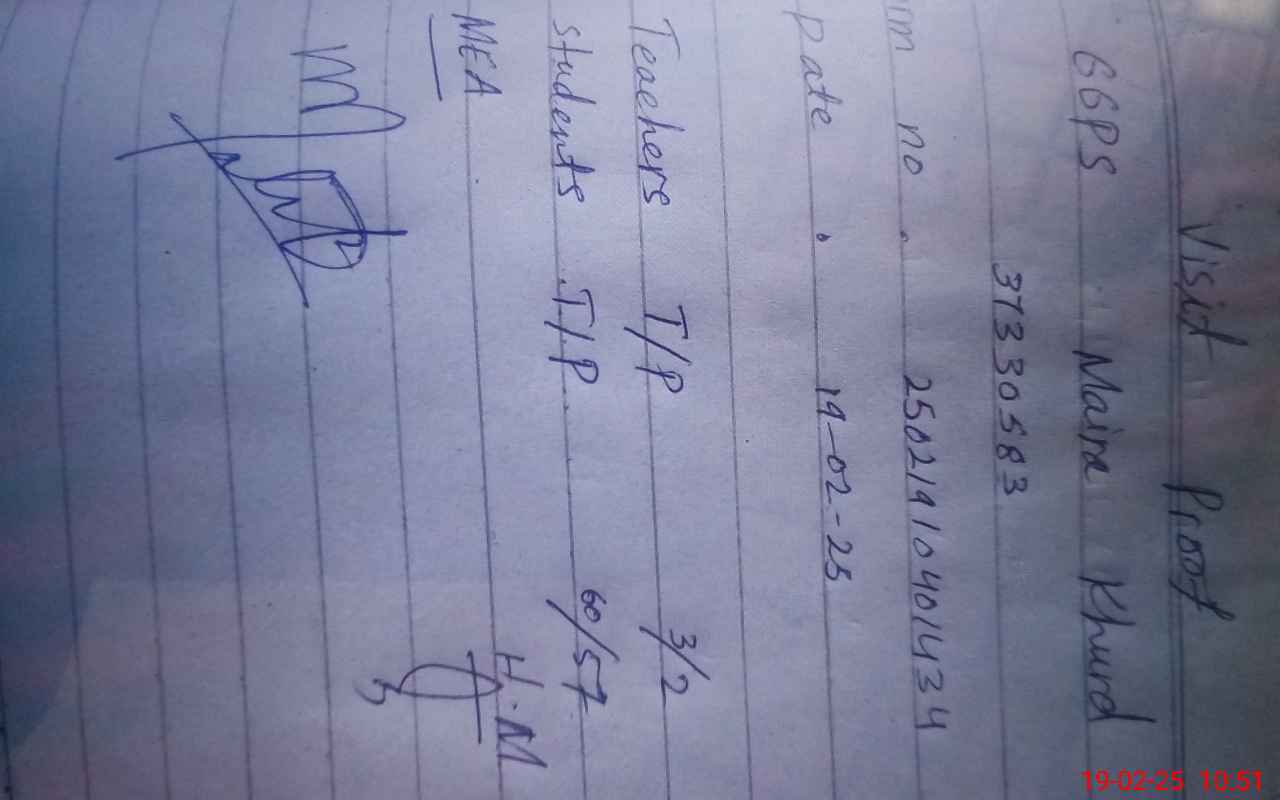 Visit Proof
GGPS Maira Khurd
37330583
rm no. 25021910401434
Date. 19-02-25
Teachers T/P 3/2
Students T/P. 60/57
MEA H.M
19-02-25 10:51